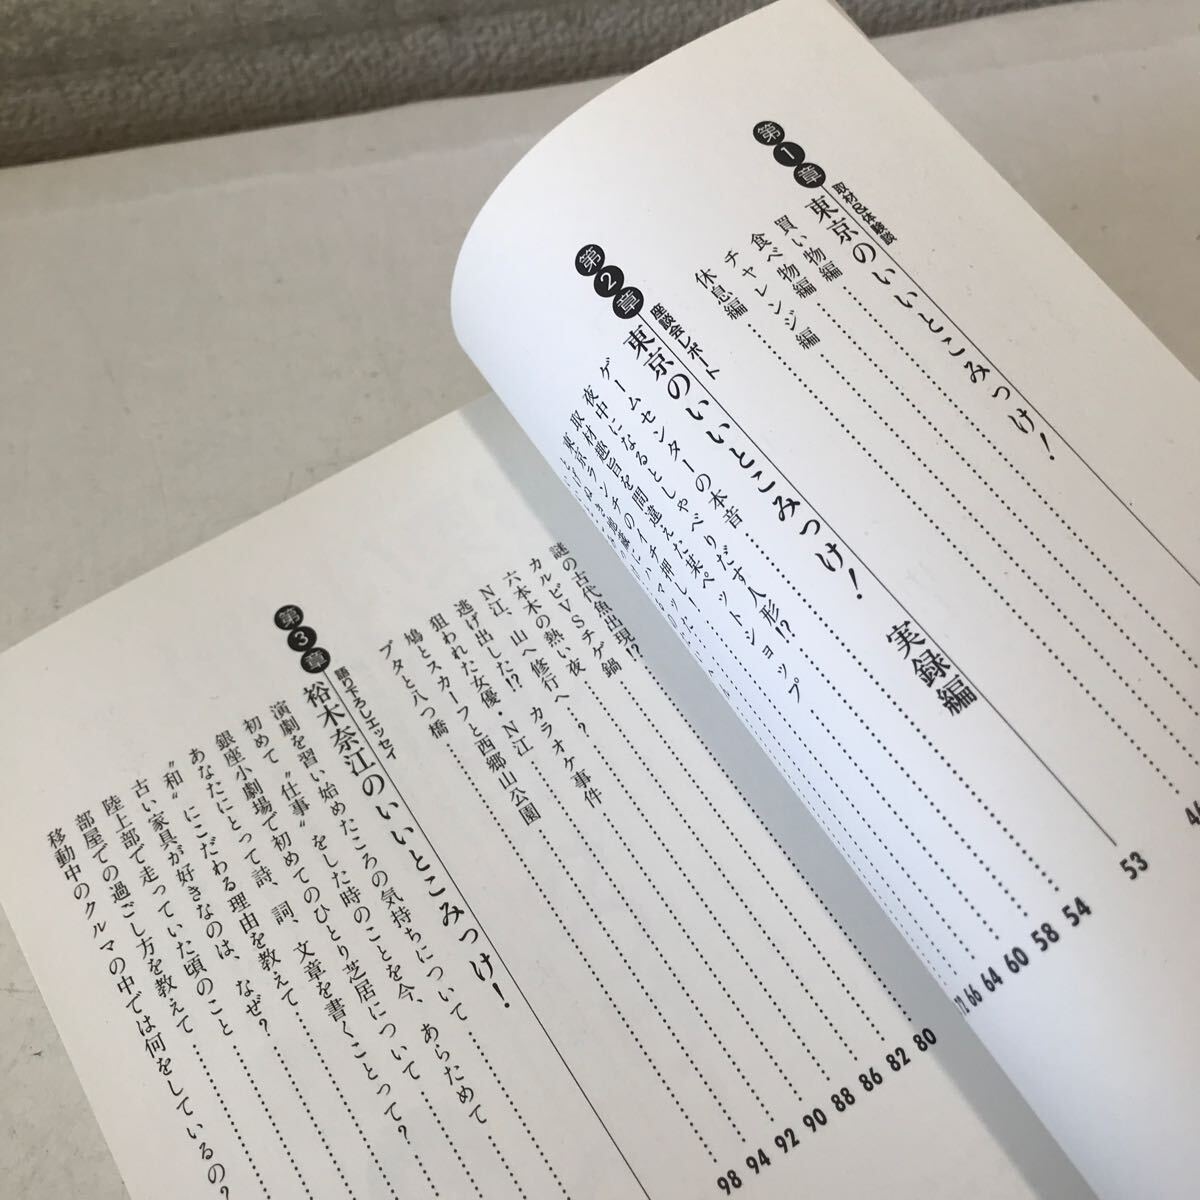 第1章
取材&体験談
東京のいいとこみつけ!
買い物編
食べ物編
チャレンジ編
休息編
46
第2章
座談会レポート
東京のいいとこみつけ! 実録編 53
ゲームセンターの本音 54
夜中になるとしゃべりだす人形!? 58
取材趣旨を間違えた某ペットショップ 60
東京ランチのイチ押し! 64
66
72
謎の古代魚出現!? 80
カルビVSチゲ鍋 82
六本木の熱い夜 カラオケ事件 86
N江、山へ修行へ…? 88
逃げ出した!? 90
狙われた女優・N江 92
鳩とスカーフと西郷山公園 94
ブタと八つ橋 98
第3章
語り下ろしエッセイ
裕木奈江のいいとこみつけ!
演劇を習い始めたころの気持ちについて
初めて“仕事”をした時のことを今、あらためて
銀座小劇場で初めてのひとり芝居について
あなたにとって詩、詞、文章を書くことって?
“和”にこだわる理由を教えて
古い家具が好きなのは、なぜ?
陸上部で走っていた頃のこと
部屋での過ごし方を教えて
移動中のクルマの中では何をしているの?